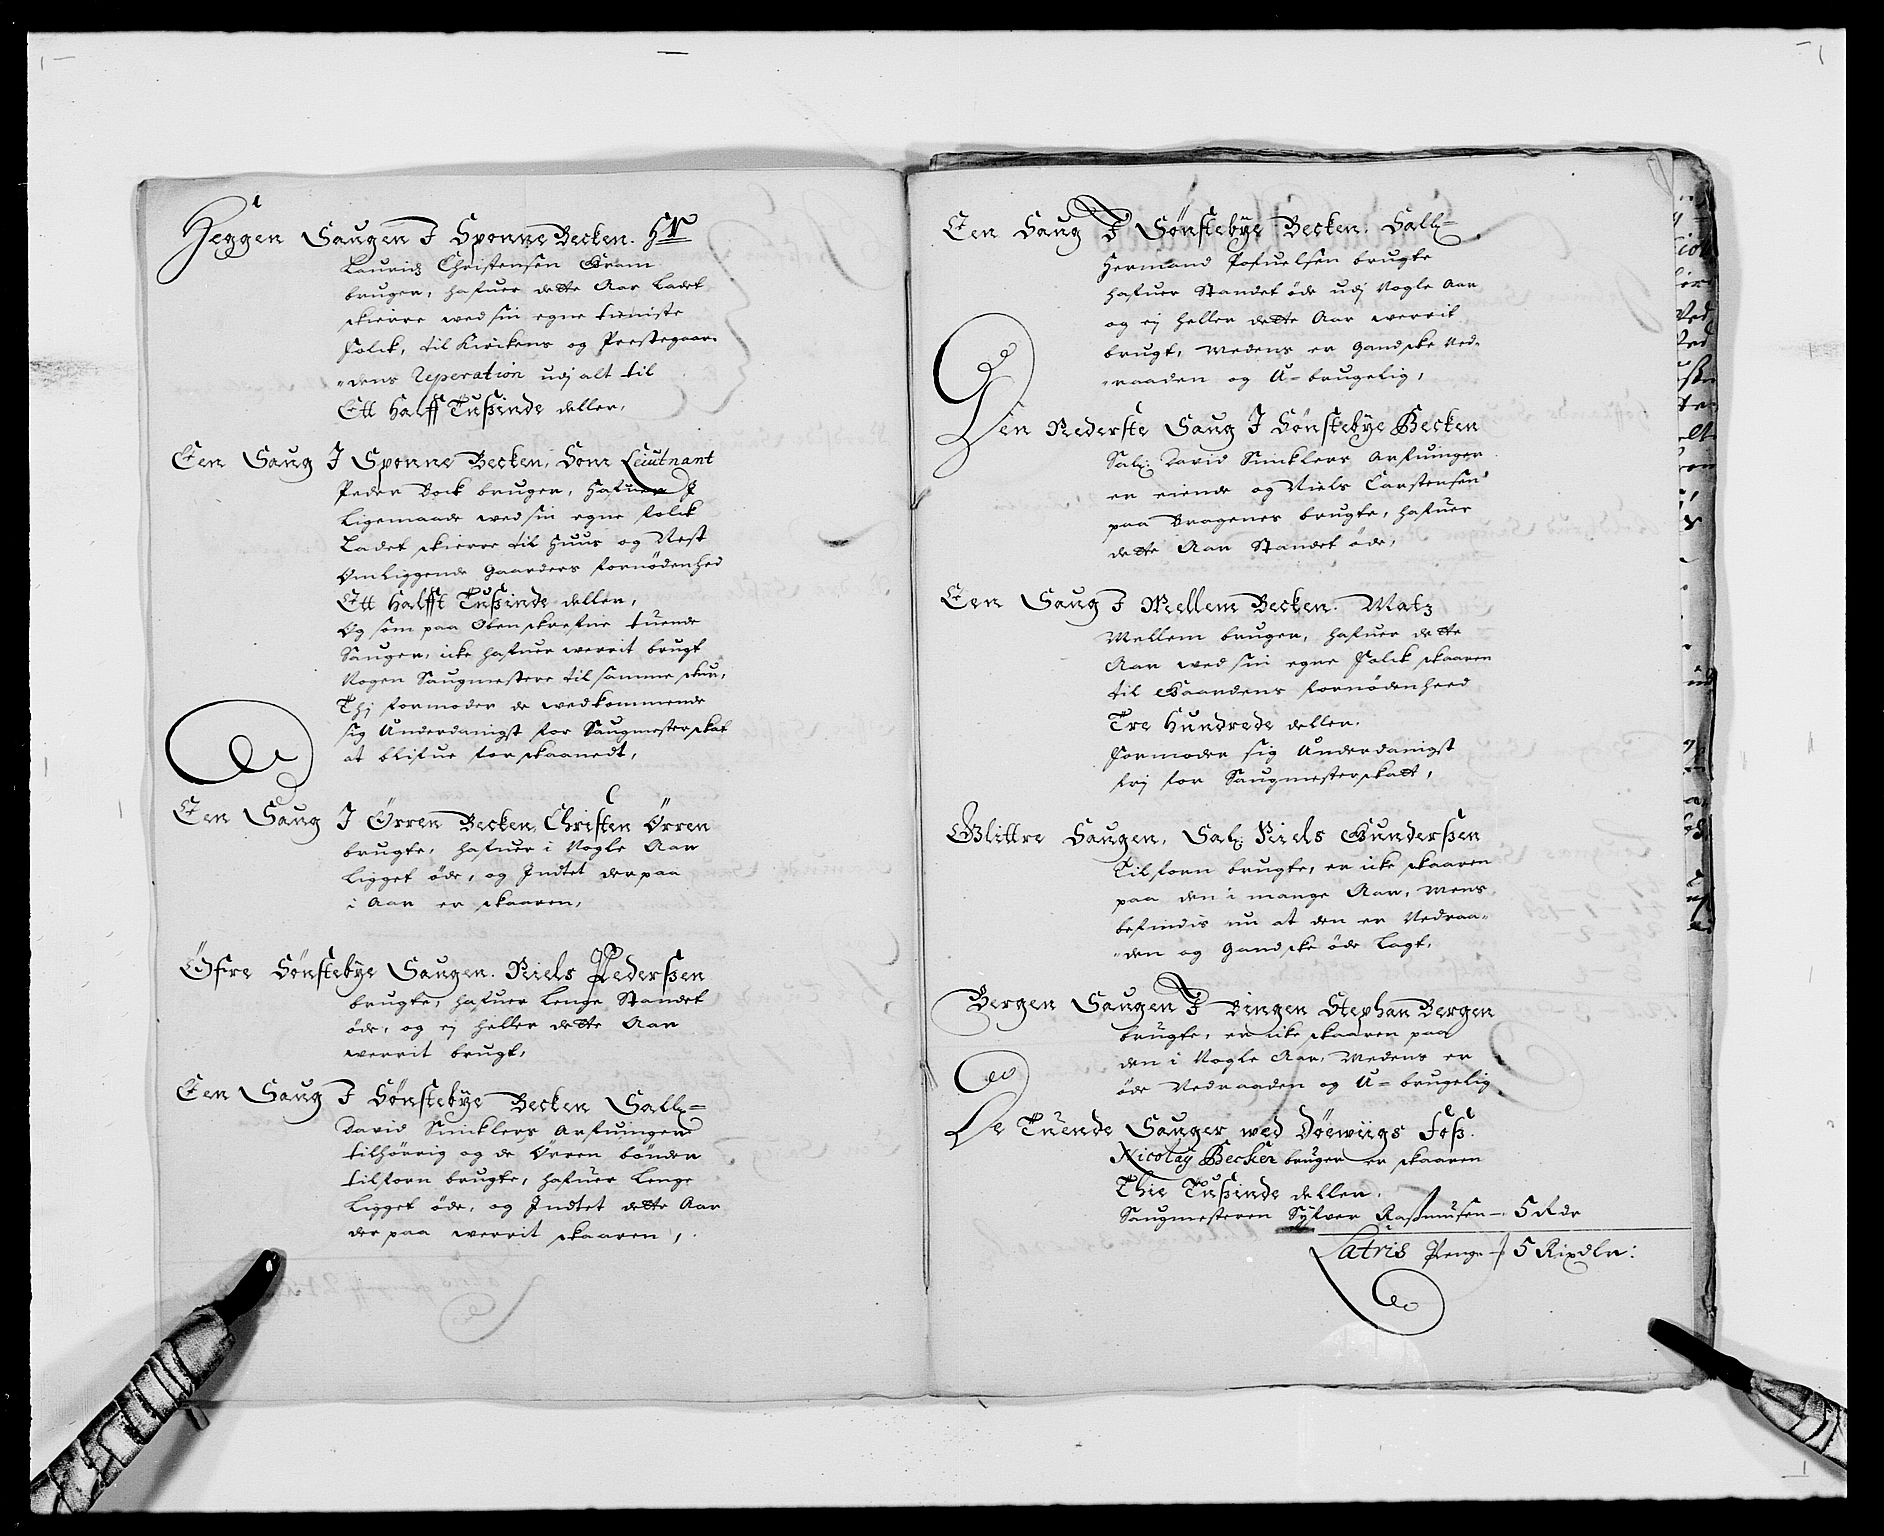 Heggen Saugen J Sponne Becken. Hr
Lauridz Christensen Gram
bruger, hafuer dette Aar Ladet
skierre wed sin egne tieniste
folck, til Kirckens og Prestegaar-
"dens Reperation udj alt til
Ett Halff Tußinde deller,
Een Saug J Sponne Becken, Som Lieutnant
Peder Bock bruger, Hafuer J
Ligemaade wed sin egne folck
Ladet skierre til Huus og Nest
Omliggende Gaarders fornødenhed
Ett Halfft Tußinde deller,
Og som paa Obenskrefne tuende
Sauger, icke hafuer werrit brugt
Nogen Saugmestere til samme skur,
Thj formoder de wedkommende
sig Underdanigst for Saugmesterskat
at blifue forskaanedt,
Een Saug J Ørren Becken, Christen Ørren
brugte, hafuer i Nogle Aar
Ligget øde, og Indtet der paa
i Aar er skaaren,
Øfre Sønstebye Saugen. Niels Pederßen
brugte, hafuer Lenge Standet
øde, og ej heller dette Aar
werrit brugt,
Een Saug J Sønstebye Becken Sall:
David Sincklers Arfuinger
tilhørrig og de Ørren bønder
tilforn brugte, hafuer Lenge
Ligget øde, og Indtet dette Aar
der paa werrit skaaren,
Een Saug J Sønstebye Becken. Sall:
Hermand Pofuelsen brugte
hafuer Standet øde udj Nogle Aar
og ej heller dette Aar werrit
brugt, Medens er Gandske Ned-
"raaden og U-brugelig,
Den Nederste Saug J Sønstebye Becken
Sal: David Sincklers Arfuinger
er eiende og Niels Carstensen
paa Bragenes brugte, hafuer
dette Aar Standet øde,
Een Saug J Mellem Becken. Matz
Mellem bruger, hafuer dette
Aar wed sin egne folck skaaren
til Gaardens fornødenheed
Tre Hundrede deller.
formoder sig Underdanigst
frj for Saugmesterskatt,
Glittre Saugen, Sal: Niels Gunderßen
Tilforn brugte, er icke skaaren
paa den i mange Aar, Mens
befindis nu at den er Nedraa-
"den og Gandske øde Lagt,
Bergen Saugen J Bingen Stephan Bergen
brugte, er icke skaaren paa
den i Nogle Aar, Medens er
øde Nedraaden og U-brugelig
De Tuende Sauger wed Døewiigs Foß.
Nicolay Becker bruger er skaaren
Thie Tußinde deller,
Saugmesteren Sylver Raßmusen – 5 Rdr
Latris Penge – 5 Rixdlr: